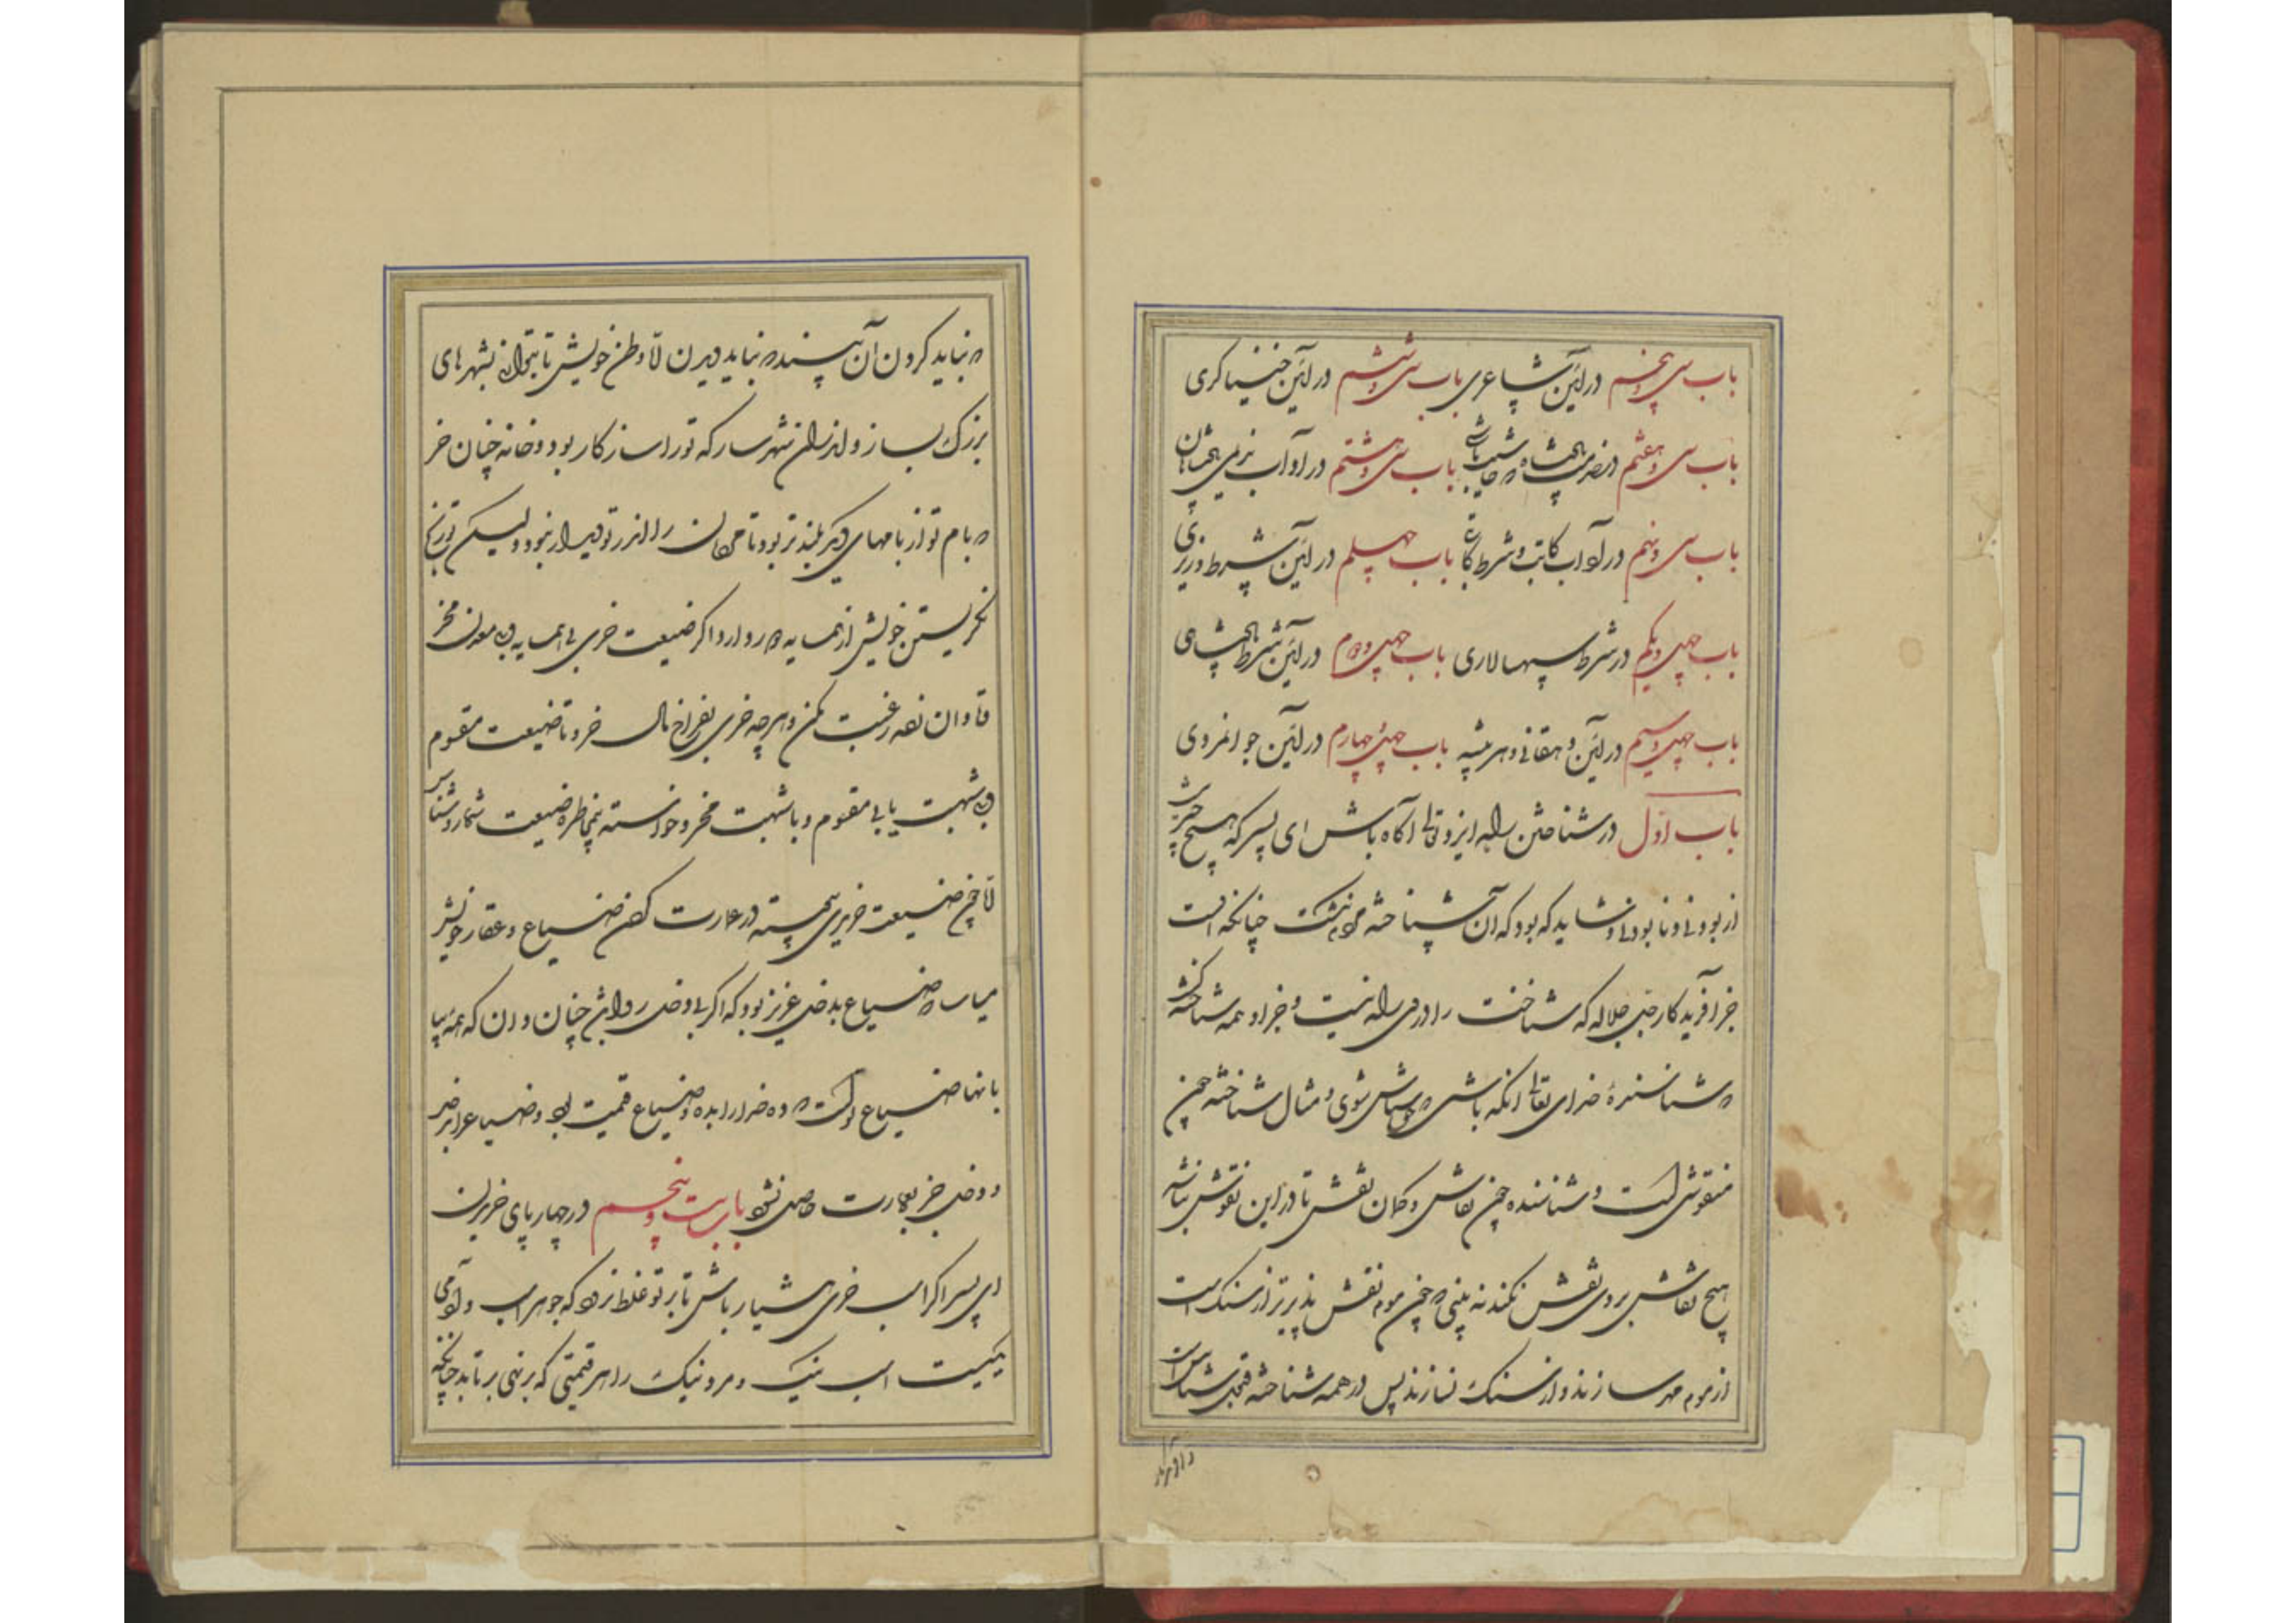 باب سی و پنجم در آئین شاعری باب سی و ششم در آئین خنیاکری
باب سی و هفتم در خدمت پادشاه باب سی و هشتم در آداب ندیمی پادشاهان
باب سی و نهم در آداب کاتب و شرط کاتبی باب چهلم در آئین شرط وزیری
باب چهل و یکم در شرط سپهسالاری باب چهل و دوم در آئین شرط پادشاهی
باب چهل و سیم در آئین دهقانی و هر پیشه باب چهل و چهارم در آئین جوانمردی
باب اول در شناختن راه ایزد تعالی آکاه باش ای پسر که هیچ چیز
از بودنی و نابودنی و شاید که بود که آن شناخته مردم نکشت چنانکه اوست
جز آفریدکار جل جلاله که شناخت را در وی راه نیست و جز او همه شناخته کشت
که شناسنده خدای تعالی آنکه باشی که ناشناس شوی و مثال شناخته چون
منقوش است و شناسنده چون نقاش و کمان نقش تا در این نقوش نباشد
هیچ نقاش بر وی نقش نکند نه بینی که چون موم نقش پذیرتر از سنک است
از موم مهر سازند و از سنک نسازند پس در همه شناخته قبول شناس است
که نباید کردن آن پسند که نباید دیدن تا وطن خویش تا بتوانی بشهرهای
بزرک ساز و اندران شهر ساز که تو را سازکار بود و خانه چنان خر
که بام تو از بامهای دیکر بلندتر بود تا مردمان را اندر تو دیدار نبود ولیکن تو رنج
نکریستن خویش از همسایه دور دار و اکر ضیعت خری بی همسایه و بی معدن مخر
تاوان نقد رغبت مکن و هر چه خری بفراخ سال خر و تا ضیعت مقسوم
و بی شبهت یابی مقسوم و با شبهت مخر و خواسته بیمخاطره ضیعت شمار و شناس
تا چون ضیعت خریدی پیوسته در عمارت کردن ضیاع و عقار خویش
میباش که ضیاع بدخل عزیز بود که اکر بی دخل روا باشد چنان دان که همه بیا
بانها ضیاع تو است که ده خدا را بده و ضیاع قیمت بود و ضیاع را بدخل
و دخل جز بعمارت حاصل نشود باب بیست و پنجم در چهارپای خریدن
ای پسر اکر اسب خری هشیار باش تا بر تو غلط نرود که جوهر اسب و آدمی
یکیست اسب نیک و مرد نیک را هر قیمتی که بر نهی بر تابد چنانکه